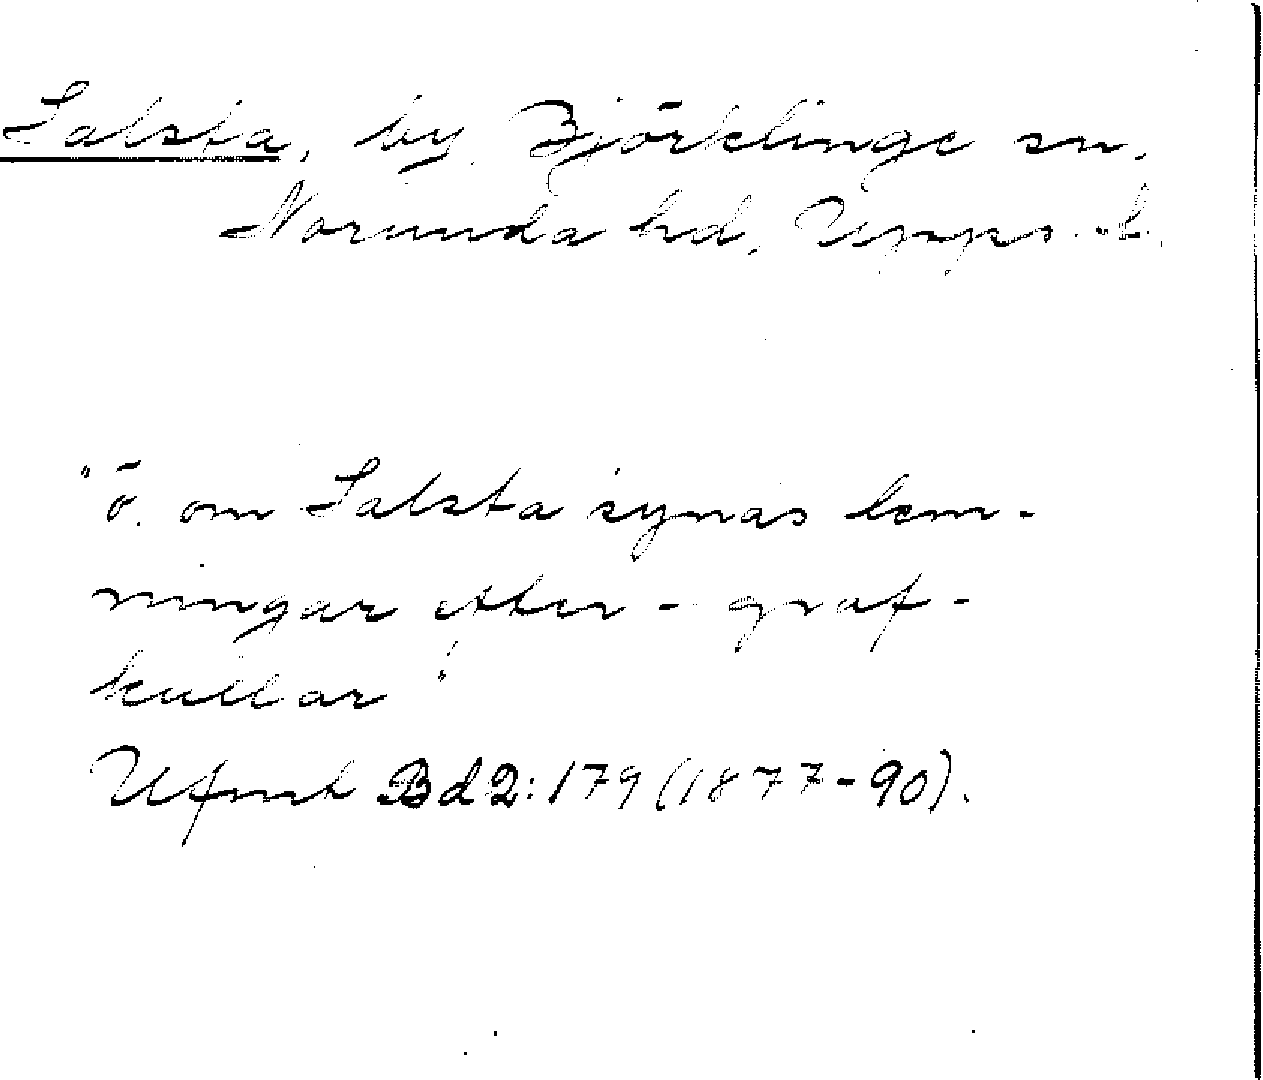 Salsta, by, Björklinge sn,
Norunda hd, Upps. l.
"ö. om Salsta synas lem-
ningar efter - graf-
kullar".
Ufmt Bd 2:179 (1877-90).